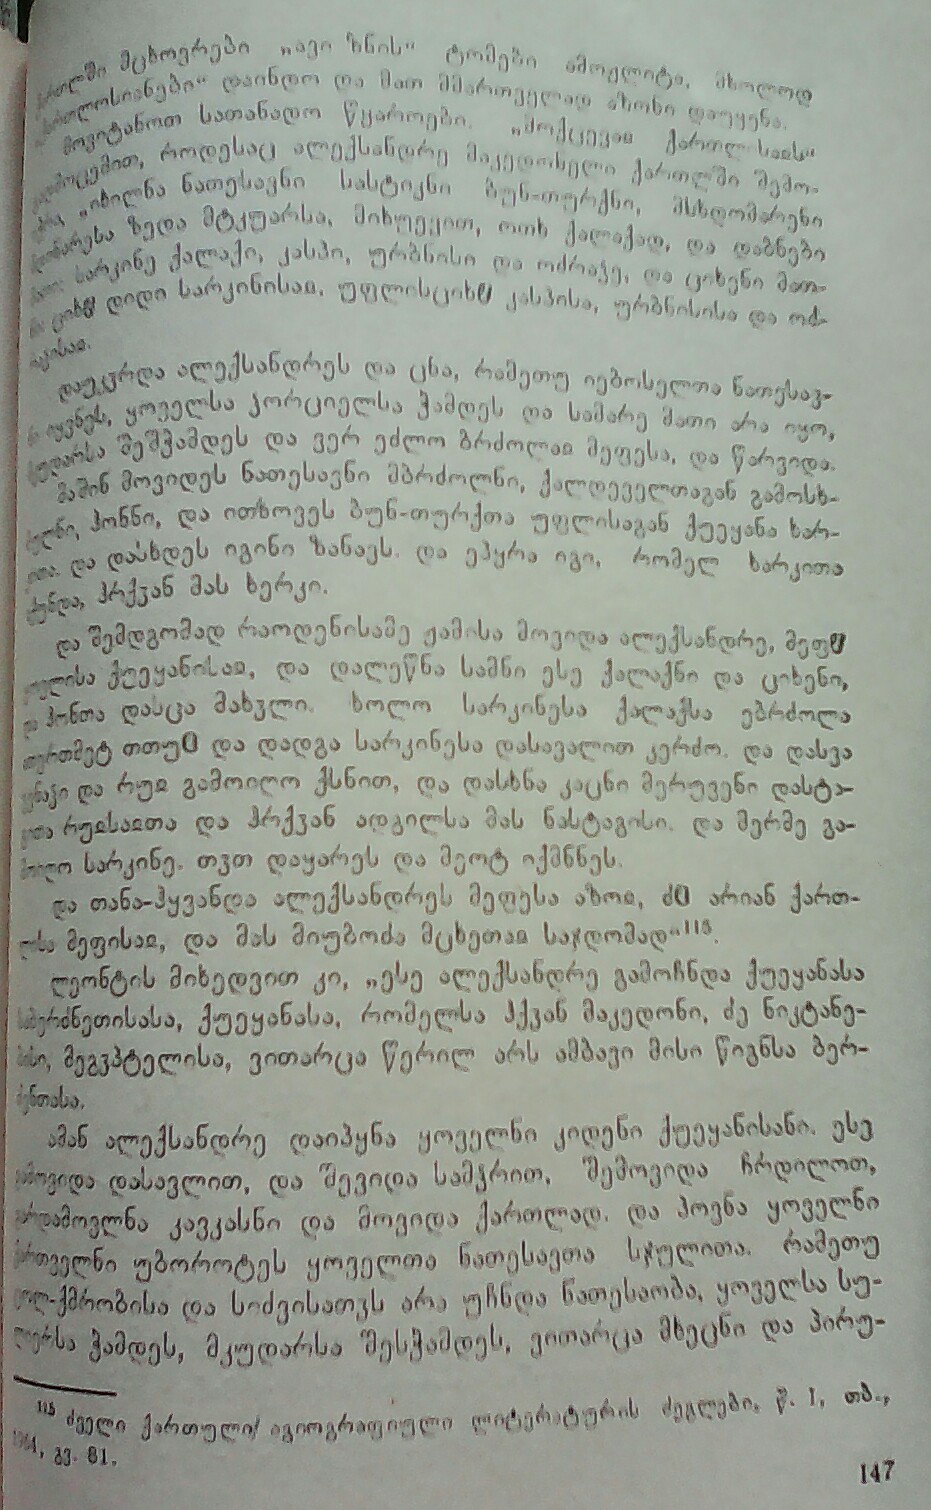 მცხოვრები „ავი ზნის“ ტომები ამოჟლიტა, მხოლოდ
დაინდო და მათ მმართველად აზონი დაუყენა.
მოვიტანოთ სათანადო წყაროები. „მოქცევაჲ ქართლისაჲს“
როდესაც ალექსანდრე მაკედონელი ქართლში შემო-
„იხილნა ნათესავნი სასტიკნი ბუნ-თურქნი, მსხდომარენი
ზედა მტკუარსა, მიხუევით, ოთხ ქალაქად, და დაბნები
სარკინე ქალაქი, კასპი, ურბნისი და ოძრაჴე, და ციხენი მათ-
ციხჱ დიდი სარკინისაჲ, უფლისციხჱ კასპისა, ურბნისისა და ოძ-
დაუკჳრდა ალექსანდრეს და ცნა, რამეთუ იებოსელთა ნათესავ-
იყვნეს, ყოველსა ჴორციელსა ჭამდეს და სამარე მათი არა იყო,
შეშჭამდეს და ვერ ეძლო ბრძოლაჲ მეფესა, და წარვიდა.
მაშინ მოვიდეს ნათესავნი მბრძოლნი, ქალდეველთაგან გამოსხ-
ჰონნი, და ითხოვეს ბუნ-თურქთა უფლისაგან ქუეყანა ხარ-
და დასხდეს იგინი ზანავს. და ეპყრა იგი, რომელ ხარკითა
ჰრქჳან მას ხერკი.
და შემდგომად რაოდენისამე ჟამისა მოვიდა ალექსანდრე, მეფჱ
ქუეყანისაჲ, და დალეწნა სამნი ესე ქალაქნი და ციხენი,
და ჰონთა დასცა მახჳლი. ხოლო სარკინესა ქალაქსა ებრძოლა
თერთმეტ თთუჱ და დადგა სარკინესა დასავალით კერძო. და დასვა
და რუჲ გამოიღო ქსნით, და დასხნა კაცნი მერუვენი დასტა-
რუჲსაჲთა და ჰრქჳან ადგილსა მას ნასტაგისი. და მერმე გა-
სარკინე. თჳთ დაყარეს და მეოტ იქმნნეს.
და თანა-ჰყვანდა ალექსანდრეს მეფესა აზოჲ, ძჱ არიან ქართ-
მეფისაჲ, და მას მიუბოძა მცხეთაჲ საჯდომად“¹¹⁵.
ლეონტის მიხედვით კი, „ესე ალექსანდრე გამოჩნდა ქუეყანასა
საბერძნეთისასა, ქუეყანასა, რომელსა ჰქჳან მაკედონი, ძე ნიკტანე-
ბისი, მეგჳპტელისა, ვითარცა წერილ არს ამბავი მისი წიგნსა ბერ-
ძენთასა.
ამან ალექსანდრე დაიპყნა ყოველნი კიდენი ქუეყანისანი. ესე
გამოვიდა დასავლით, და შევიდა სამჴრით, შემოვიდა ჩრდილოთ,
გარდამოვლნა კავკასნი და მოვიდა ქართლად. და პოვნა ყოველნი
ქართველნი უბოროტეს ყოველთა ნათესავთა სჯულითა. რამეთუ
ცოლ-ქმრობისა და სიძვისათჳს არა უჩნდა ნათესაობა, ყოველსა სუ-
ლიერსა ჭამდეს, მკუდარსა შესჭამდეს, ვითარცა მხეცნი და პირუ-
¹¹⁵ ძველი ქართული აგიოგრაფიული ლიტერატურის ძეგლები, წ. I, თბ.,
გვ. 81.
147